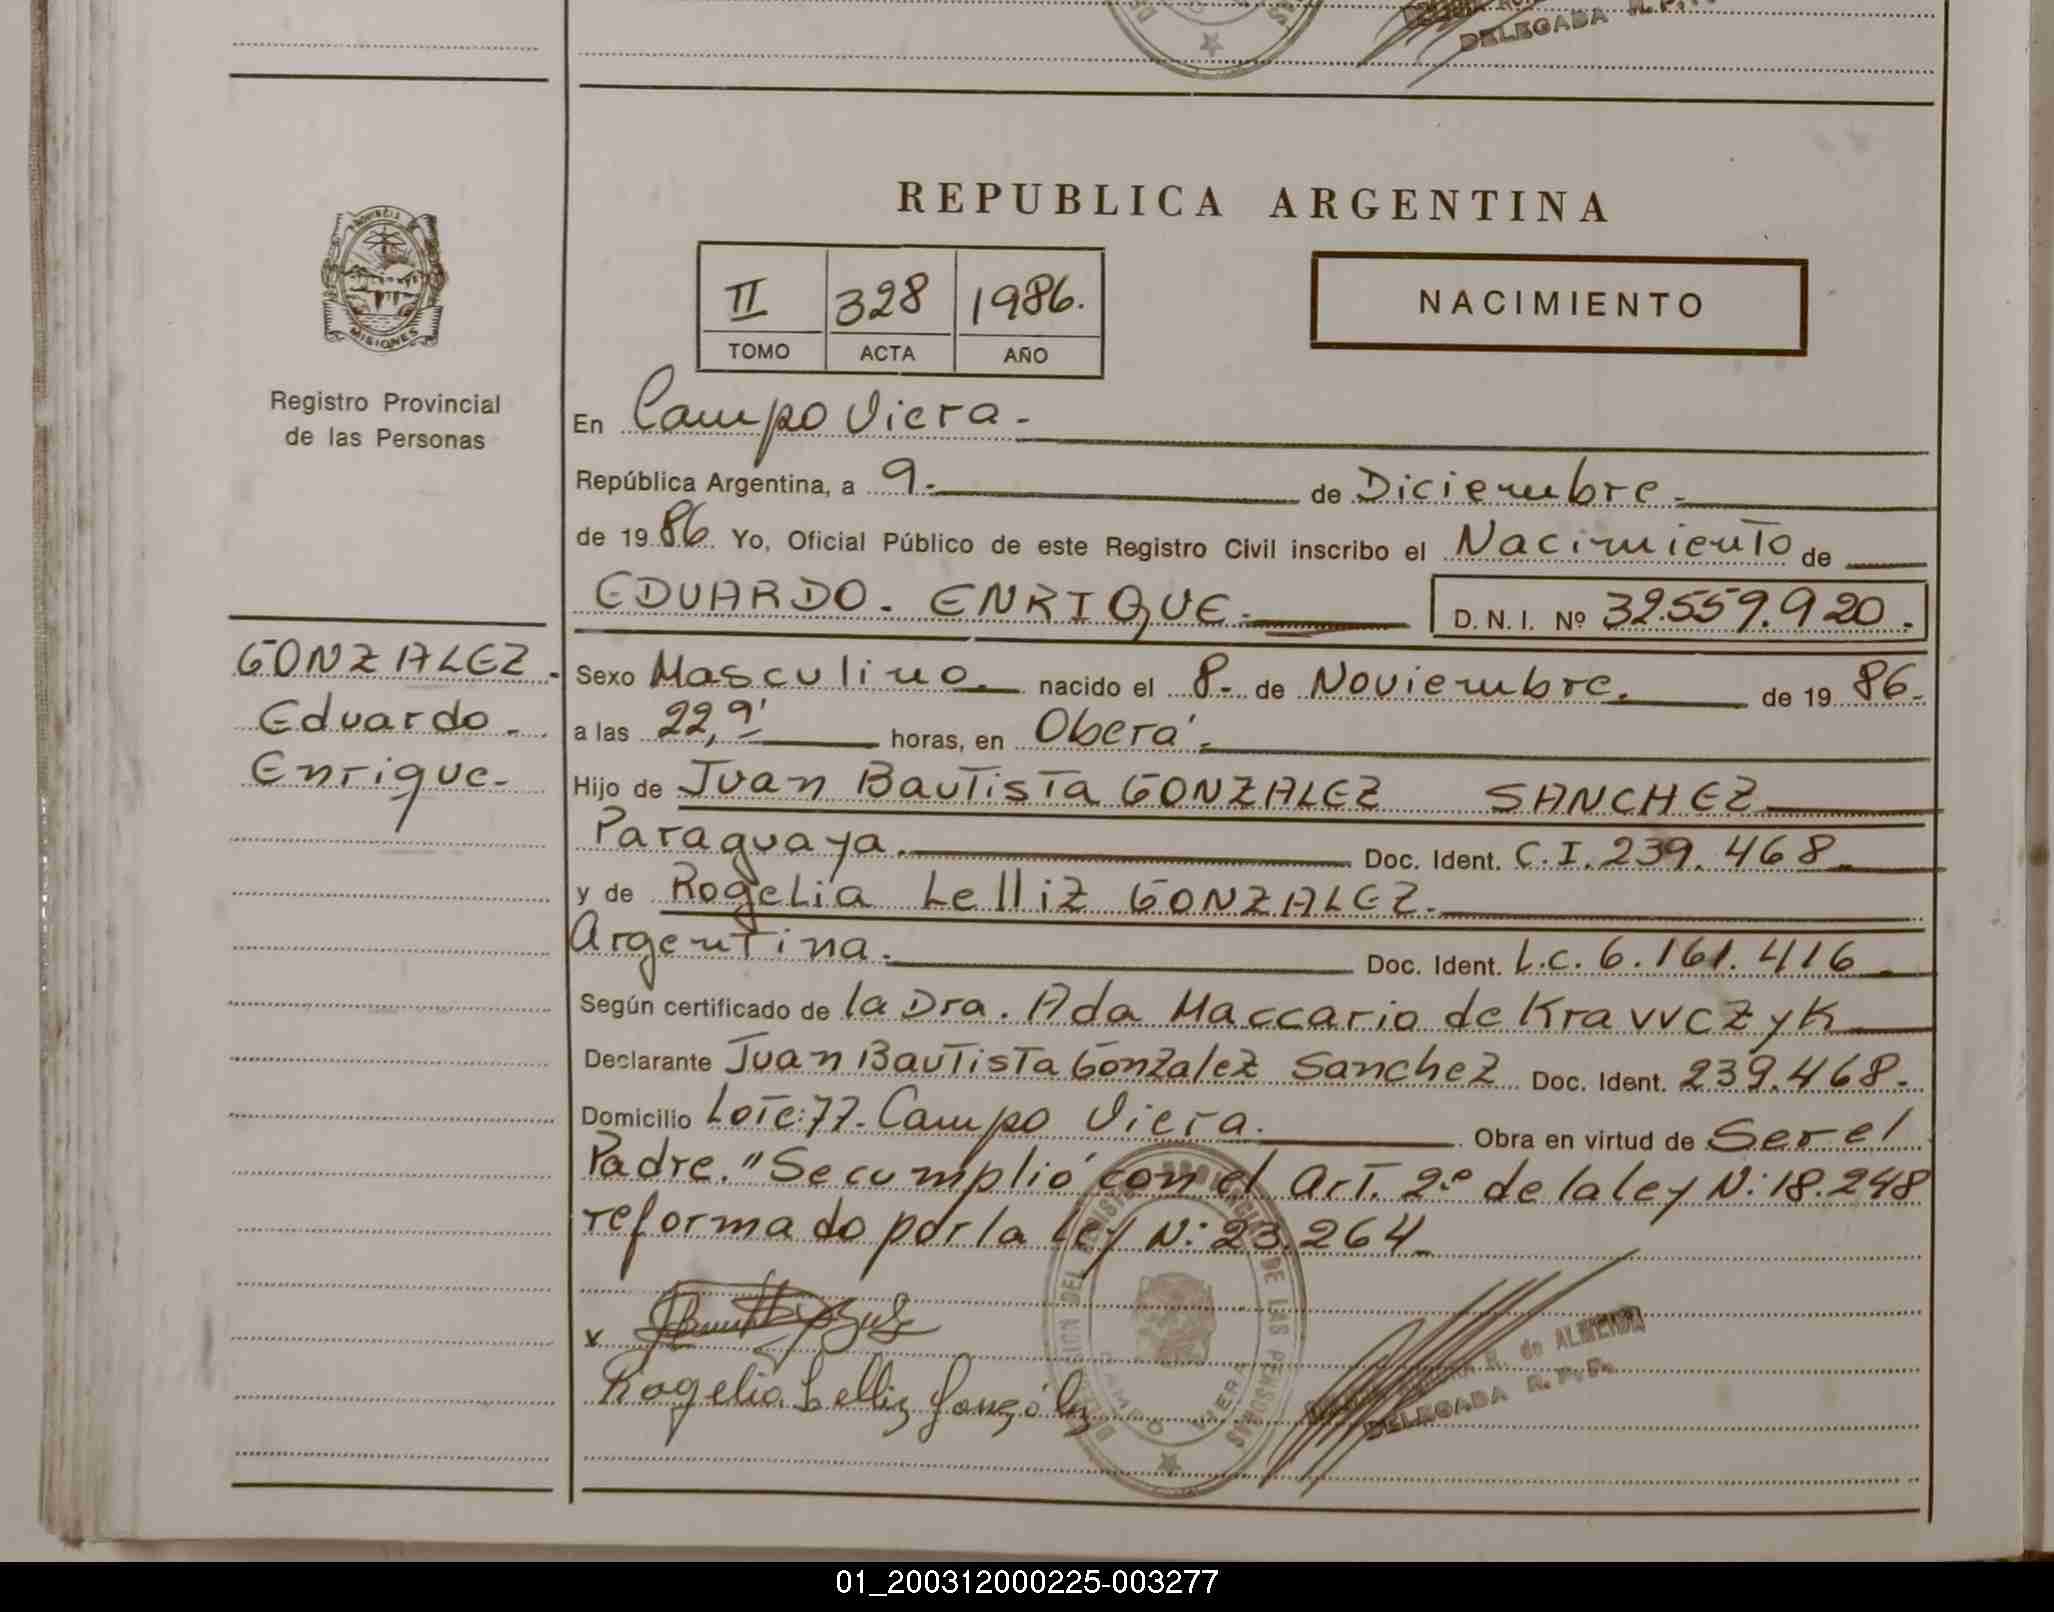 DELEGADA R.P.P.
REPUBLICA ARGENTINA
PROVINCIA DE
MISIONES
Registro Provincial
de las Personas
II 328 1986.
TOMO ACTA AÑO
NACIMIENTO
En Campo Viera.
República Argentina, a 9. de Diciembre.
de 19 86 Yo, Oficial Público de este Registro Civil inscribo el Nacimiento de
EDUARDO. ENRIQUE. D. N. I. Nº 32.559.920.
GONZALEZ.
Eduardo.
Enrique.
Sexo Masculino. nacido el 8. de Noviembre. de 19 86.
a las 22,9' horas, en Oberá.
Hijo de Juan Bautista GONZALEZ SANCHEZ
Paraguaya. Doc. Ident. C.I. 239.468
y de Rogelia Lelliz GONZALEZ.
Argentina. Doc. Ident. L.C. 6.161.416
Según certificado de la Dra. Ada Maccario de Kravvczyk
Declarante Juan Bautista Gonzalez Sanchez Doc. Ident. 239.468.
Domicilio Lote:77. Campo Viera. Obra en virtud de Ser el
Padre. "Se cumplió con el Art. 2º de la ley N: 18.248
reformado por la Ley N: 23.264.
x
Rogelia Lelliz González
DEL REGISTRO PROVINCIAL DE LAS PERSONAS
CAMPO VIERA
R. de ALMEIDA
DELEGADA R.P.P.
01_200312000225-003277